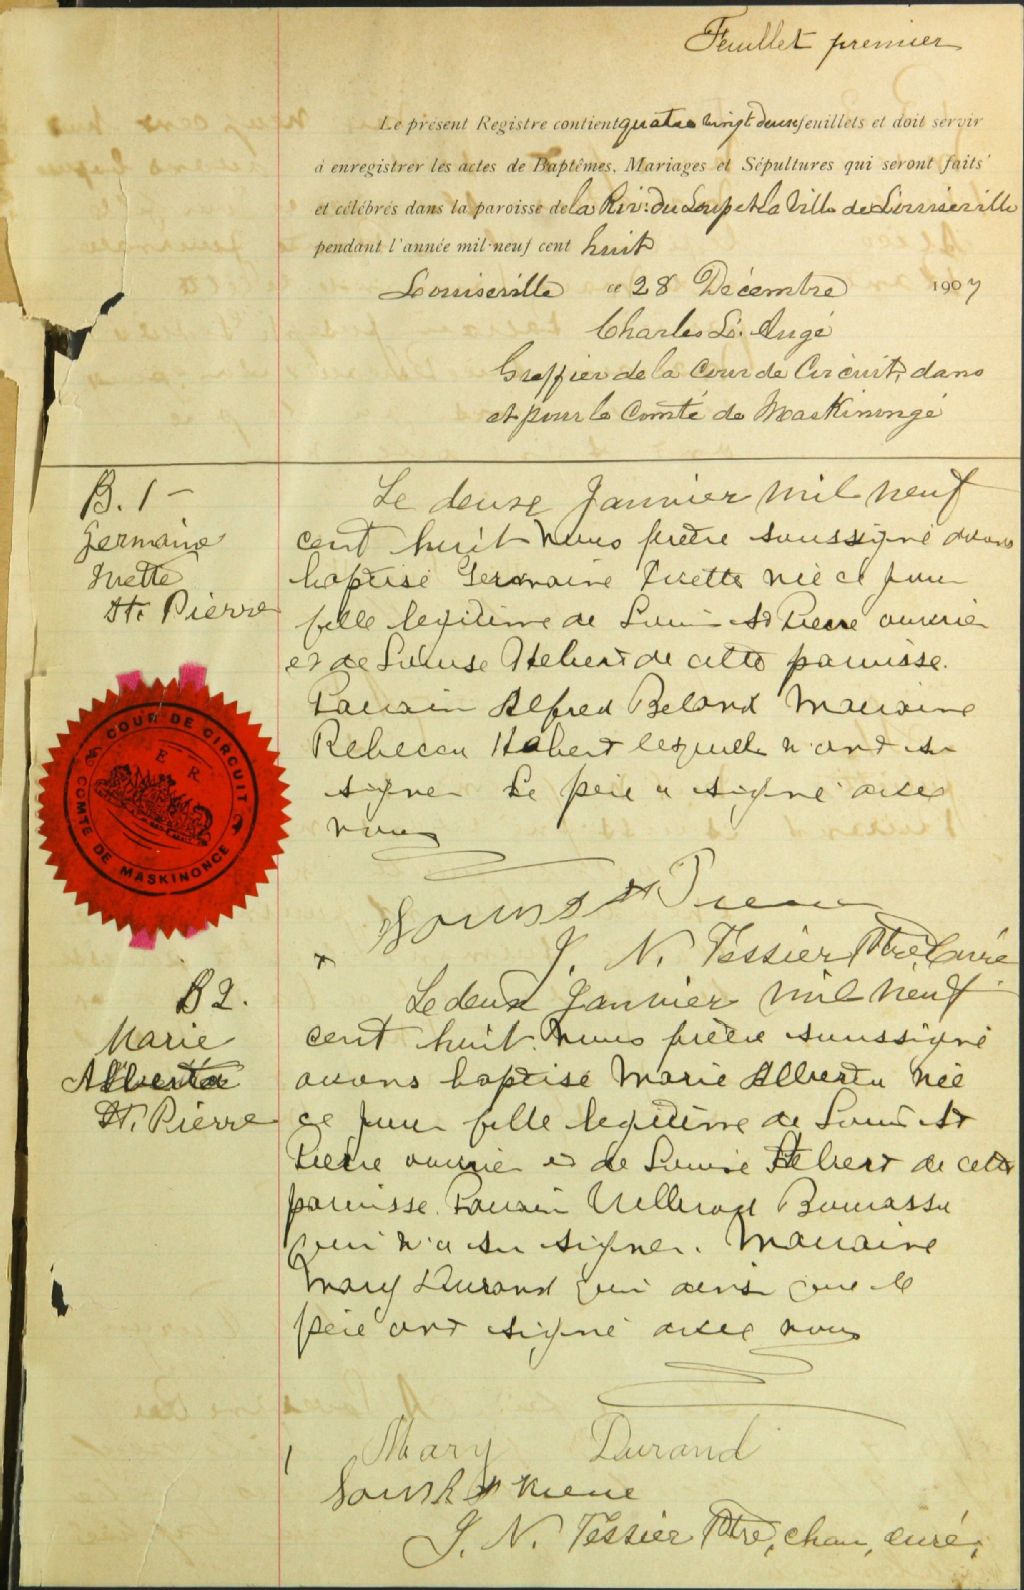 Feuillet premier
Le présent Registre contient quatre vingt deux feuillets et doit servir
à enregistrer les actes de Baptêmes, Mariages et Sépultures qui seront faits
et célébrés dans la paroisse de la Riv. du Loup et la Ville de Louiseville
pendant l'année mil-neuf cent huit
Louiseville ce 28 Décembre 1907
Charles L. Augé
Greffier de la Cour de Circuit, dans
et pour le Comté de Maskinongé
B. 1 -
Germaine
Yvette
St. Pierre
Le deux Janvier mil neuf
cent huit nous prêtre soussigné avons
baptisé Germaine Yvette née ce jour
fille legitime de Louis St Pierre ouvrier
et de Louise Hebert de cette paroisse.
Parrain Alfred Beland Marraine
Rebecca Hebert lesquels n'ont su
signer Le père a signé avec
nous
COUR DE CIRCUIT
E R
COMTÉ DE MASKINONGE
Louis St Pierre
J. N. Tessier Ptre, Curé
B 2.
Marie
Alberta
St. Pierre
Le deux Janvier mil neuf
cent huit nous prêtre soussigné
avons baptisé Marie Alberta née
ce jour fille legitime de Louis St
Pierre ouvrier et de Louise Hebert de cette
paroisse. Parrain Willerod Bourassa
qui n'a su signer. Marraine
Mary Durand qui ainsi que le
père ont signé avec nous
Mary Durand
Louis St Pierre
J. N. Tessier Ptre, chan, curé,